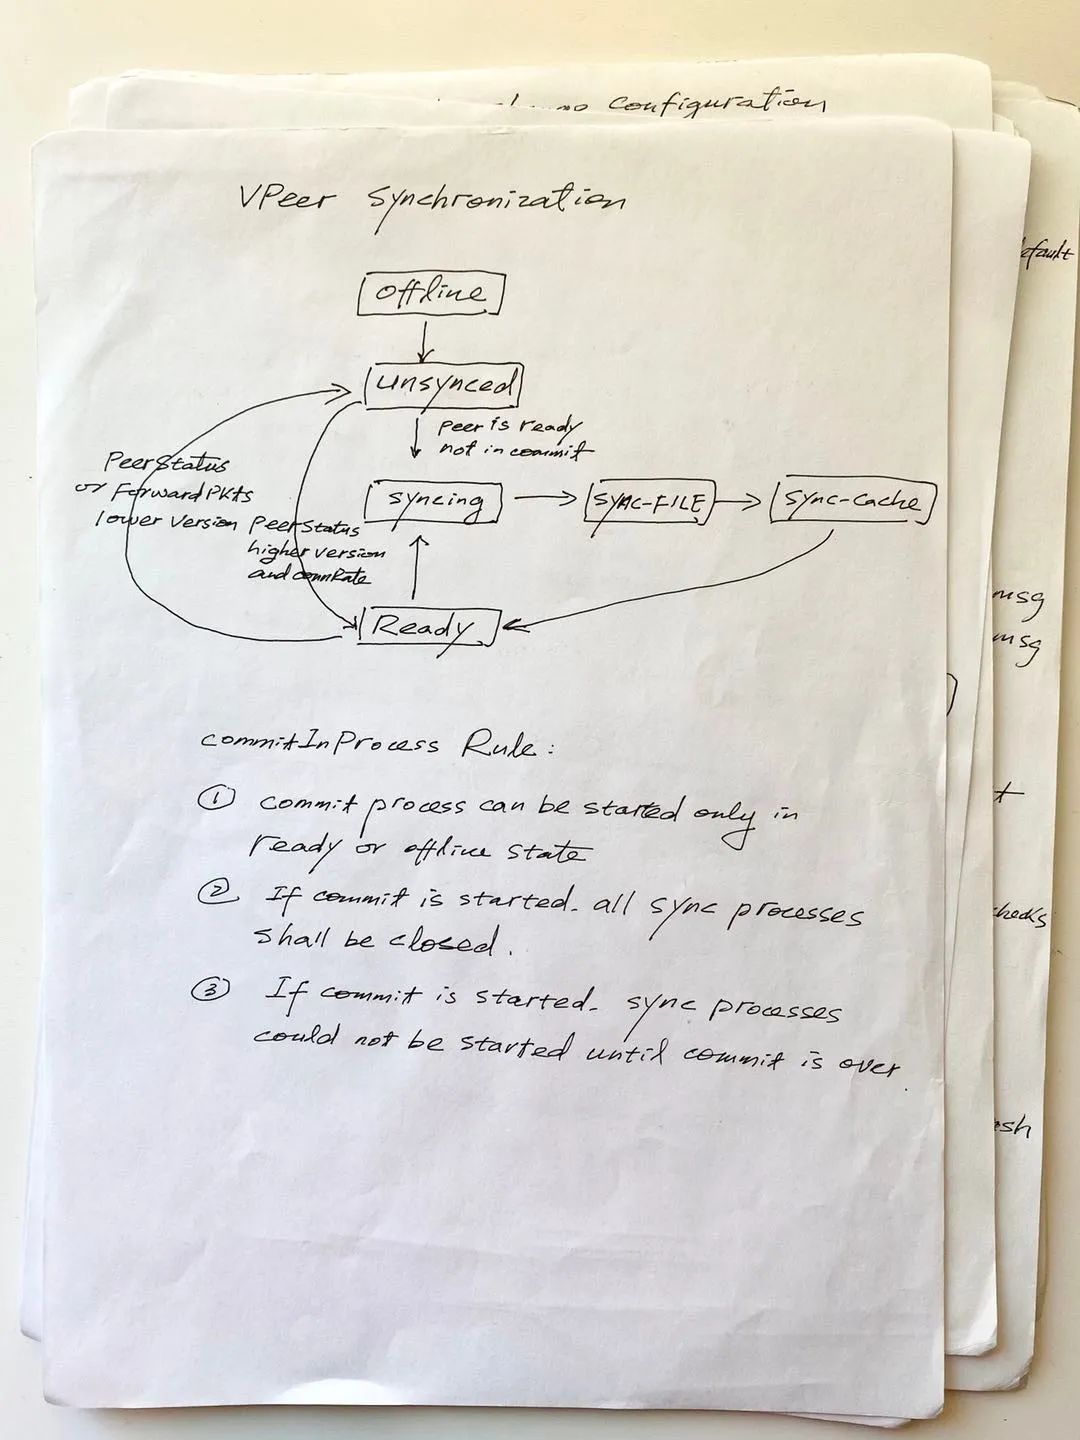 no configuration
VPeer Synchronization
offline
unsynced
peer is ready
not in commit
PeerStatus
or ForwardPkts
lower version
syncing
SYNC-FILE
sync-cache
PeerStatus
higher version
and
Ready
commitInProcess Rule:
① commit process can be started only in
ready or offline state
② If commit is started. all sync processes
shall be closed.
③ If commit is started. sync processes
could not be started until commit is over.
efault
msg
msg
t
checks
esh